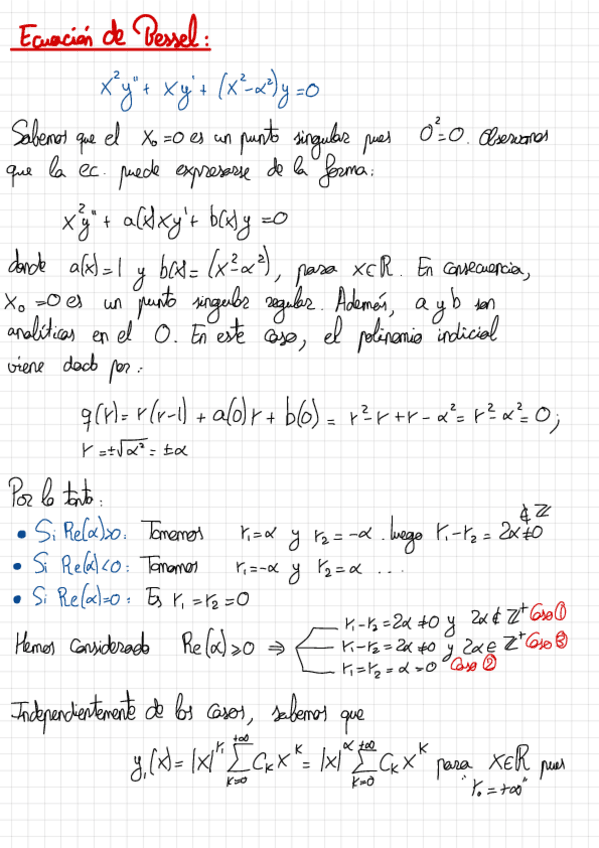 Ecuación de Bessel:
x²y'' + xy' + (x²-α²)y=0
Sabemos que el x₀=0 es un punto singular pues 0²=0. Observamos
que la ec. puede expresarse de la forma:
x²y'' + a(x)xy' + b(x)y = 0
donde a(x)=1 y b(x)=(x²-α²), para x∈ℝ. En consecuencia,
x₀=0 es un punto singular regular. Además, a y b son
analíticas en el 0. En este caso, el polinomio indicial
viene dado por:
q(r)= r(r-1) + a(0)r + b(0) = r²-r+r-α²= r²-α²=0;
r=±√α² = ±α
Por lo tanto:
• Si Re(α)>0: Tomamos r₁=α y r₂=-α. Luego r₁-r₂ = 2α≠0 ∉ℤ
• Si Re(α)<0: Tomamos r₁=-α y r₂=α ...
• Si Re(α)=0: Es r₁=r₂=0
Hemos considerado Re(α)≥0 ⇒
r₁-r₂=2α≠0 y 2α∉ℤ⁺ Caso ①
r₁-r₂=2α≠0 y 2α∈ℤ⁺ Caso ③
r₁=r₂=α=0 Caso ②
Independientemente de los casos, sabemos que
y₁(x)= |x|^r₁ ∑_{k=0}^{+∞} C_k x^k = |x|^α ∑_{k=0}^{+∞} C_k x^k para x∈ℝ pues
"r₀=+∞"